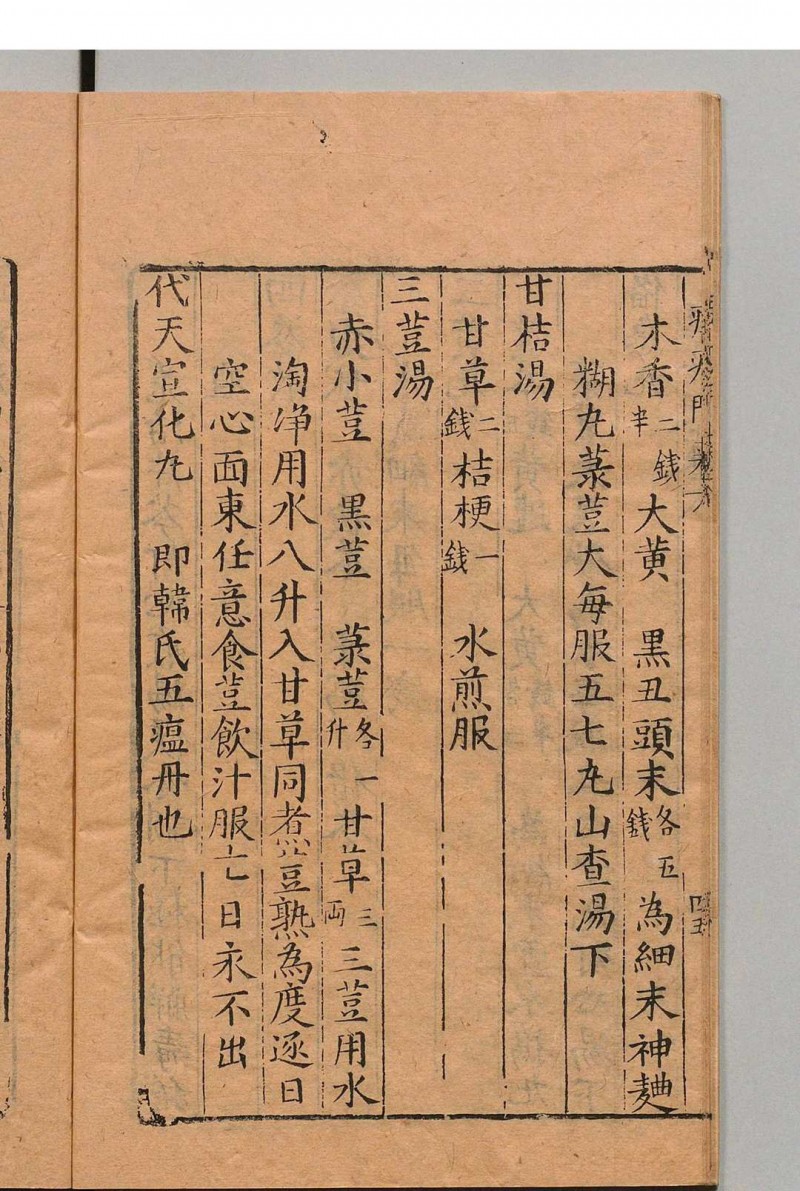 木香二錢半大黃 黑丑頭末各五錢為細末神麯
糊丸菉荳大每服五七丸山查湯下
甘桔湯
甘草二錢桔梗一錢 水煎服
三荳湯
赤小荳 黒荳 菉荳各一升甘草三兩三荳用水
淘淨用水八升入甘草同煮以豆熟為度逐日
空心面東任意食荳飲汁服七日永不出
代天宣化丸 即韓氏五瘟丹也